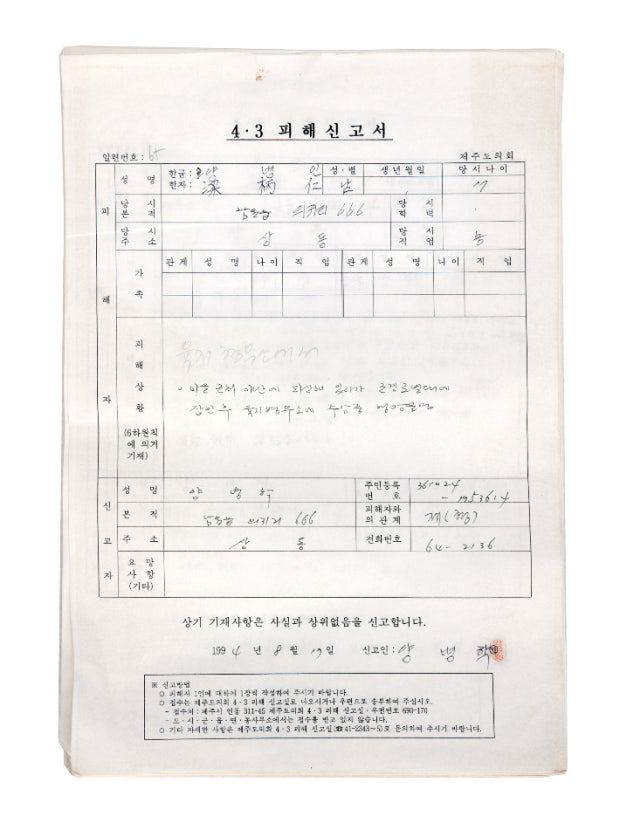 4·3 피해신고서
일련번호: 65
제주도의회
성 명 한글: 양 병 인 성·별 생년월일 당시나이
한자: 梁 柄 仁 남 17
피 당시 본적 남원읍 의귀리 666 당시 학력
당시 주소 상 동 당시 직업 농
해 가족 관계 성명 나이 직업 관계 성명 나이 직업
자 피해상황
육지 형무소에서
피신해 있다가
잡힌 후 육지형무소에 수감중 행방불명
(6하원칙
에 의거
기재)
신고자 성 명 양 병 학 주민등록 번호 361024
- 1953614
본 적 남원읍 의귀리 666 피해자와의 관계 제(형)
주 소 상 동 전화번호 64-2136
요망
사항
(기타)
상기 기재사항은 사실과 상위없음을 신고합니다.
1994 년 8 월 19일 신고인: 양 병 학
※ 신고방법
○ 피해자 1인에 대하여 1장씩 작성하여 주시기 바랍니다.
○ 접수는 제주도의회 4·3 피해 신고실로 나오시거나 우편으로 송부하여 주십시오.
- 접수처: 제주시 연동 311-45 제주도의회 4·3 피해 신고실·우편번호 690-170
- 도·시·군·읍·면·동사무소에서는 접수를 받고 있지 않습니다.
○ 기타 자세한 사항은 제주도의회 4·3 피해 신고실(☎41-2343~5)로 문의하여 주시기 바랍니다.